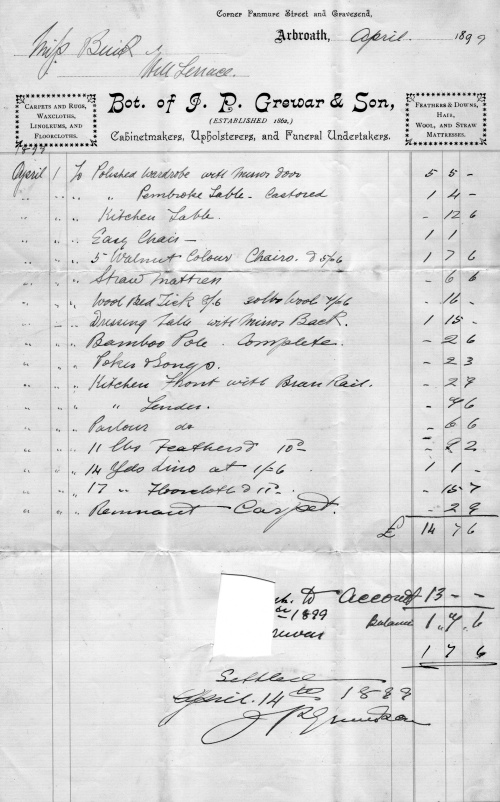 Corner Panmure Street and Gravesend,
Arbroath, April 1899
Miss Buik
Hill Terrace.
Bot. of J. P. Grewar & Son,
(ESTABLISHED 1862,)
Cabinetmakers, Upholsterers, and Funeral Undertakers.
CARPETS AND RUGS,
WAXCLOTHS,
LINOLEUMS, AND
FLOORCLOTHS.
FEATHERS & DOWNS,
HAIR,
WOOL, AND STRAW
MATTRESSES.
April 1 To Polished Wardrobe with Mirror door 5 5 -
" " " " Pembroke Table - Castored 1 4 -
" " " Kitchen Table. - 12 6
" " " Easy Chair - 1 1
" " " 5 Walnut Colour Chairs. @ 5/6 1 7 6
" " " Straw Mattress - 6 6
" " " Wool Bed Tick 30 lbs Wool - 16 -
" " " Dressing Table with Mirror Back. 1 15 -
" " " Bamboo Pole Complete. - 2 6
" " " Poker & Tongs. - 2 3
" " " Kitchen Front with Brass Rail. - 2 9
" " " " Fender.
" " " Parlour do - 6 6
" " " 11 lbs Feathers @ 10d - 9 2
" " " 14 Yds Lino at 1/6 1 1 -
" " " 17 " Floorcloth @ 11d - 15 7
" " " Remnant Carpet. - 2 9
£ 14 7 6
to account 13 - -
1899
Balance 1 " 7 " 6
1 7 6
Settled
April 14th 1899
J P Grewar & Son